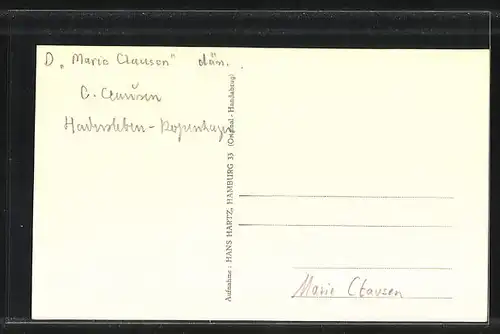 D „Marie Clausen" dän.
C. Clausen
Hadersleben - Kopenhagen
Aufnahme: HANS HARTZ, HAMBURG 33 (Original-Handabzug)
Marie Clausen